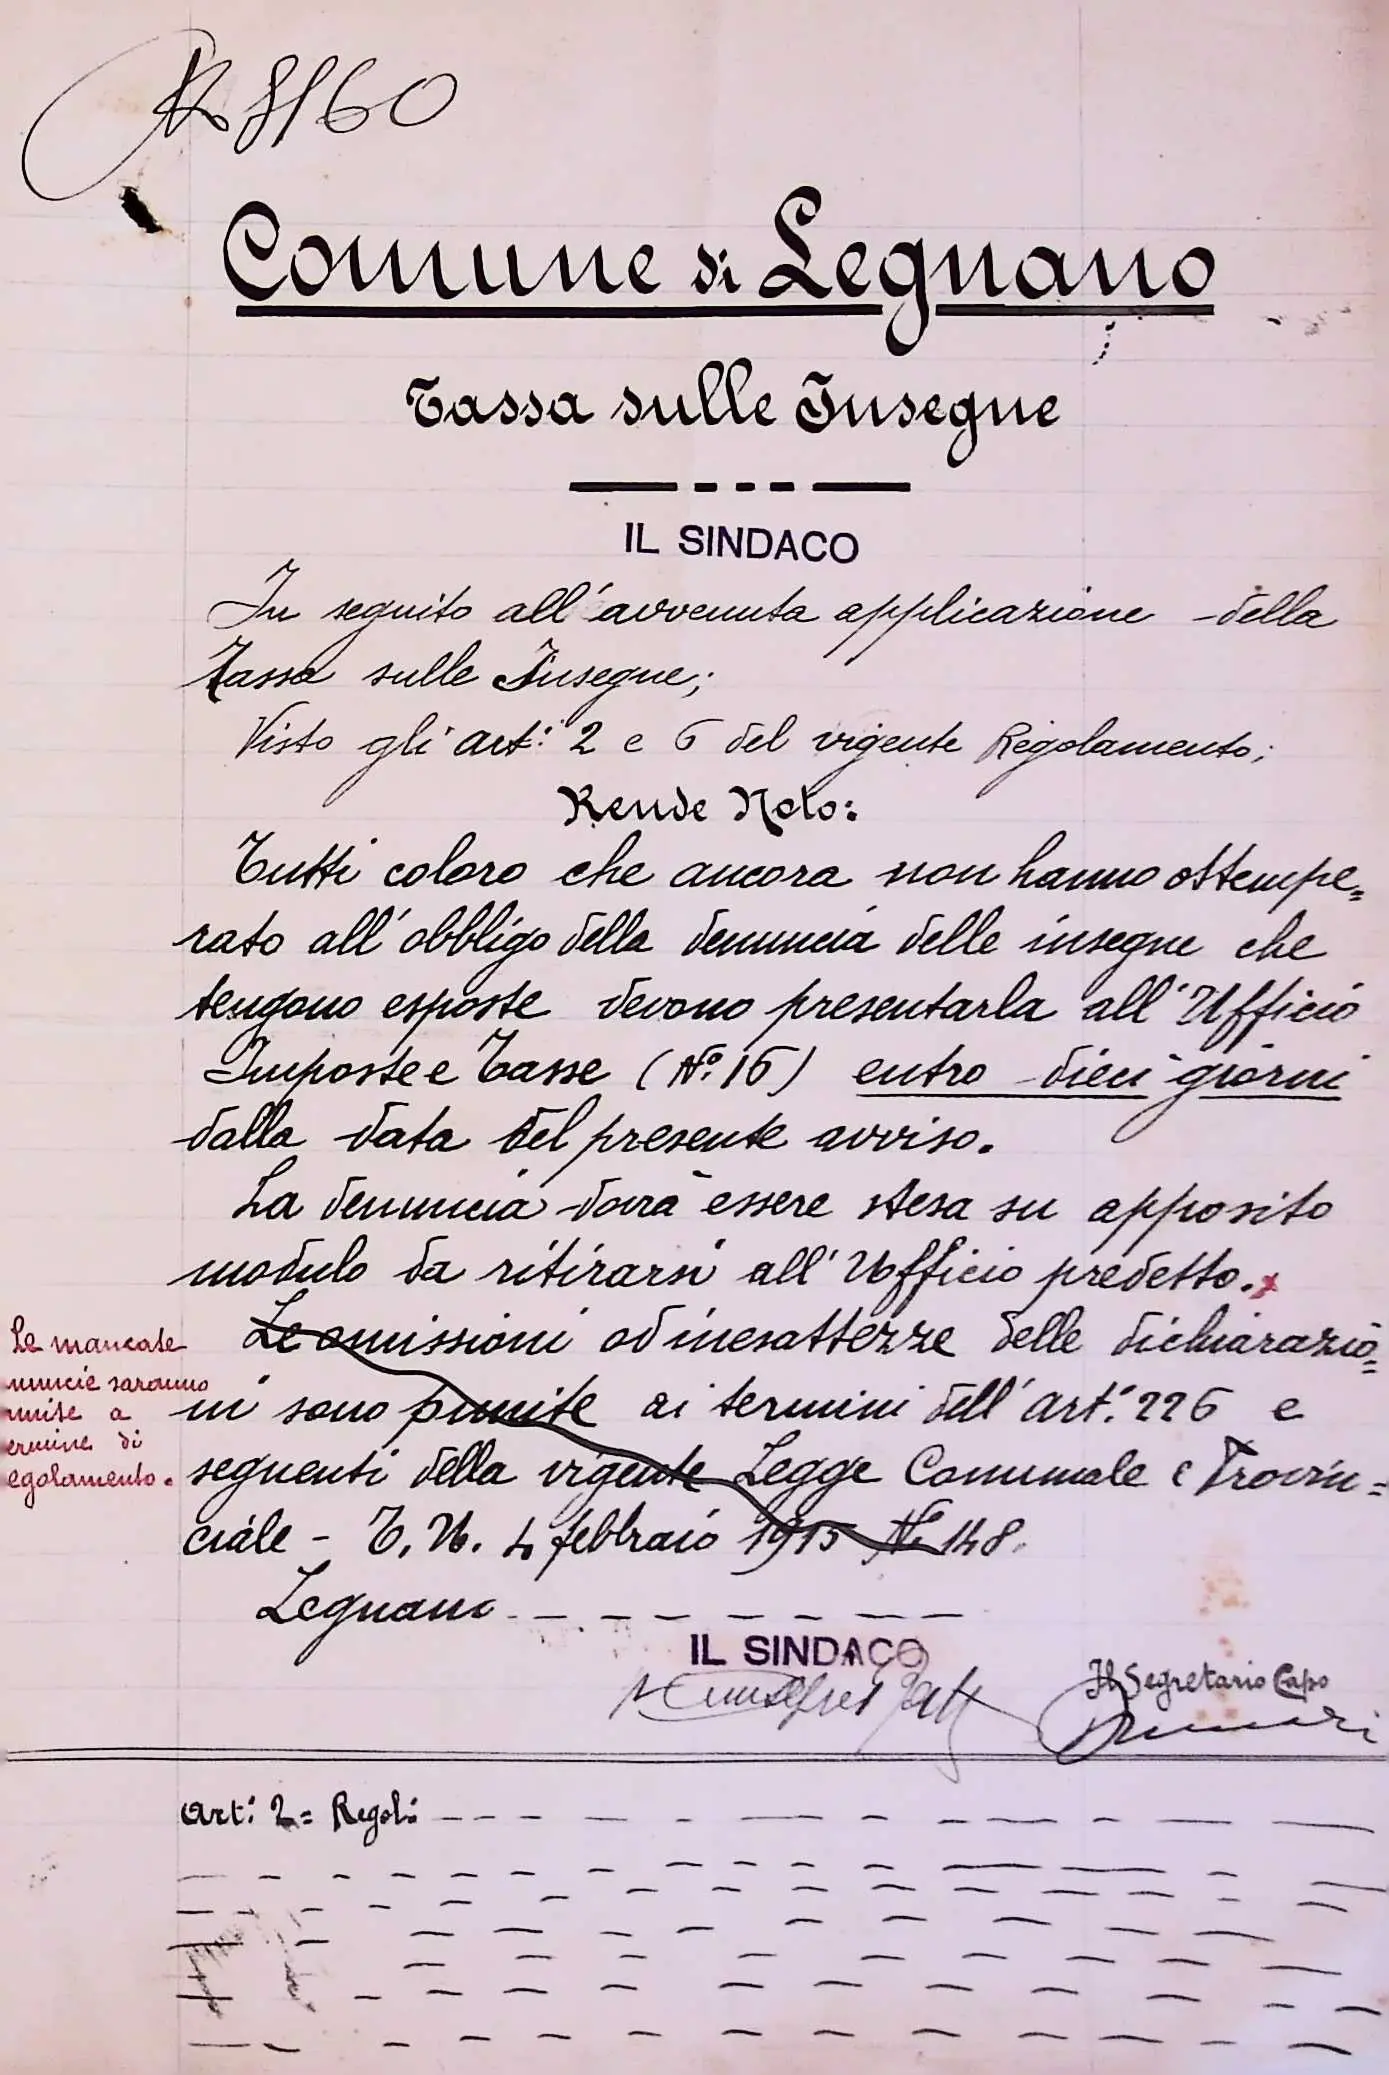 N. 8160
Comune di Legnano
Tassa sulle Insegne
IL SINDACO
In seguito all'avvenuta applicazione della
Tassa sulle Insegne;
Visto gli art.i 2 e 6 del vigente Regolamento;
Rende Noto:
Tutti coloro che ancora non hanno ottempe=
rato all'obbligo della denuncia delle insegne che
tengono esposte devono presentarla all'Ufficio
Imposte e Tasse (N.° 16) entro dieci giorni
dalla data del presente avviso.
La denuncia dovrà essere stesa su apposito
modulo da ritirarsi all'Ufficio predetto. x
Le omissioni od inesattezze delle dichiarazio=
ni sono punite ai termini dell'art.° 226 e
seguenti della vigente Legge Comunale e Provin=
ciale - T. U. 4 febbraio 1915 N° 148.
Le mancate
nuncie saranno
nite a
ermine di
egolamento.
Legnano
IL SINDACO
Il Segretario Capo
Art: 2 = Regol: